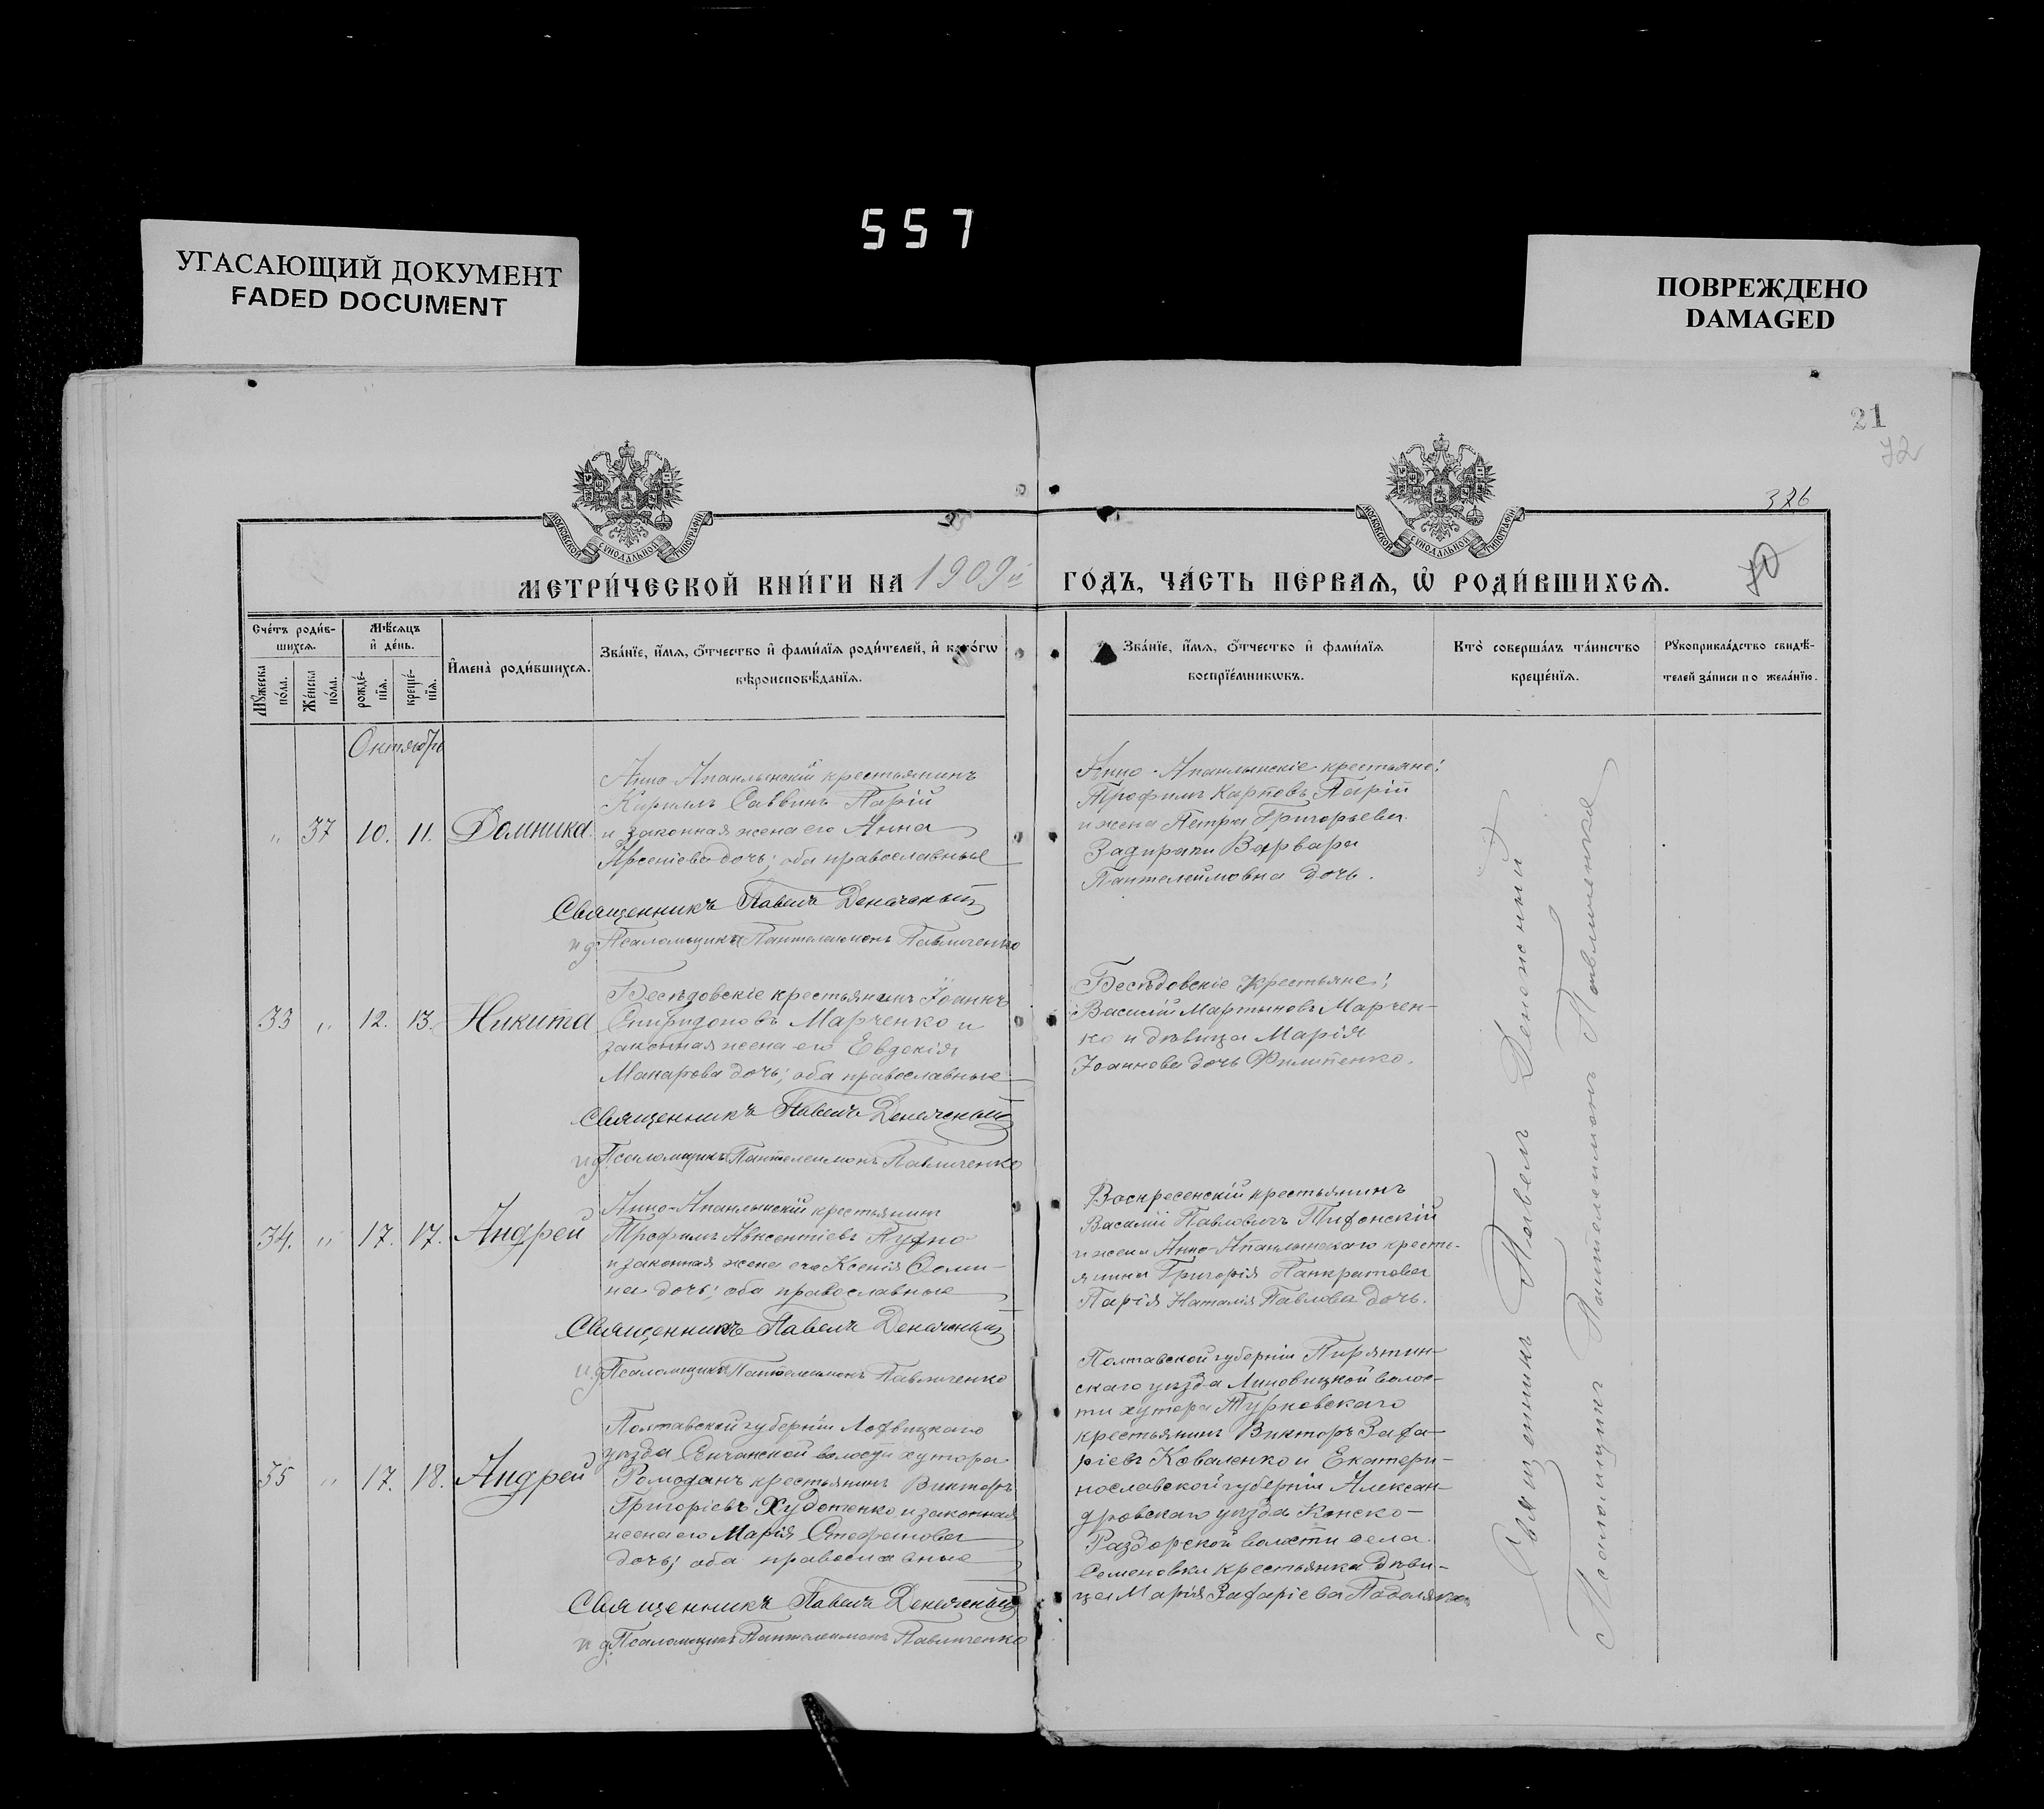 557
УГАСАЮЩИЙ ДОКУМЕНТ
FADED DOCUMENT
ПОВРЕЖДЕНО
DAMAGED
21
72
376
70
МОСКОВСКОЙ СУНОДАЛЬНОЙ ТИПОГРАФІИ
МОСКОВСКОЙ СУНОДАЛЬНОЙ ТИПОГРАФІИ
МЕТРИ́ЧЕСКОЙ КНИ́ГИ НА 1909й ГО́ДЪ, ЧА́СТЬ ПЕ́РВАѦ, Ѡ҆ РОДИ́ВШИХСѦ.
Сче́тъ роди́в-
шихсѧ.
Мѣ́сѧцъ
и҆ де́нь.
Мꙋ́жеска
по́ла.
Же́нска
по́ла.
рожде́-
нїѧ.
креще́-
нїѧ.
И҆мена̀ роди́вшихсѧ.
Зва́нїе, и҆́мѧ, ѻ҆́тчество и҆ фами́лїѧ роди́телей, и҆ како́гѡ
вѣроисповѣ́данїѧ.
Зва́нїе, и҆́мѧ, ѻ҆́тчество и҆ фами́лїѧ
воспрїе́мникѡвъ.
Кто̀ соверша́лъ та́инство
креще́нїѧ.
Рꙋкоприкла́дство свидѣ́-
телей за́писи по жела́нїю.
Октябрь
" 37 10. 11. Домника.
Анно-Апанлынскій крестьянинъ
Кириллъ Саввинъ Парій
и законная жена его Анна
Арсеніева дочь; оба православные
Анно-Апанлынскіе крестьяне:
Трофимъ Карповъ Парій
и жена Петра Григорьева
Задираки Варвара
Пантелеимовна дочь.
Священникъ Павелъ Денежный
и д Псаломщика Пантелеимонъ Павличенко
33 " 12. 13. Никита
Бесѣдовскіе крестьянинъ Іоаннъ
Спиридоновъ Марченко и
законная жена его Евдокія
Макарова дочь; оба православные
Бесѣдовскіе крестьяне:
Василій Мартыновъ Марчен-
ко и дѣвица Марія
Іоаннова дочь Филипенко.
Священникъ Павелъ Денежный
и д Псаломщика Пантелеимонъ Павличенко
34. " 17. 17. Андрей
Анно-Апанлынскій крестьянинъ
Трофимъ Авксентіевъ
и законная жена его Ксенія
на дочь; оба православные
Воскресенскій крестьянинъ
Василій Павловичъ
и жена Анно-Апанлынскаго кресть-
янина Григорія Панкратова
Парія Наталія Павлова дочь.
Священникъ Павелъ Денежный
и д Псаломщика Пантелеимонъ Павличенко
35 " 17. 18. Андрей
Полтавской губерніи Лофвицкаго
уѣзда Сенчанской волости хутора
Ромоданъ крестьянинъ Викторъ
Григоріевъ и законная
жена его Марія Стефанова
дочь; оба православные
Полтавской губерніи Пирятин-
скаго уѣзда Линовицкой волос-
ти хутора Турновскаго
крестьянинъ Викторъ Заха-
ріевъ Коваленко и Екатери-
нославской губерніи Алексан-
дровскаго уѣзда Конско-
Раздорской волости села
Семеновки крестьянка дѣви-
ца Марія Захаріева Подоляка.
Священникъ Павелъ Денежный
и д. Псаломщика Пантелеимонъ Павличенко
Священникъ Павелъ Денежный
Псаломщикъ Пантелеимонъ Павличенко